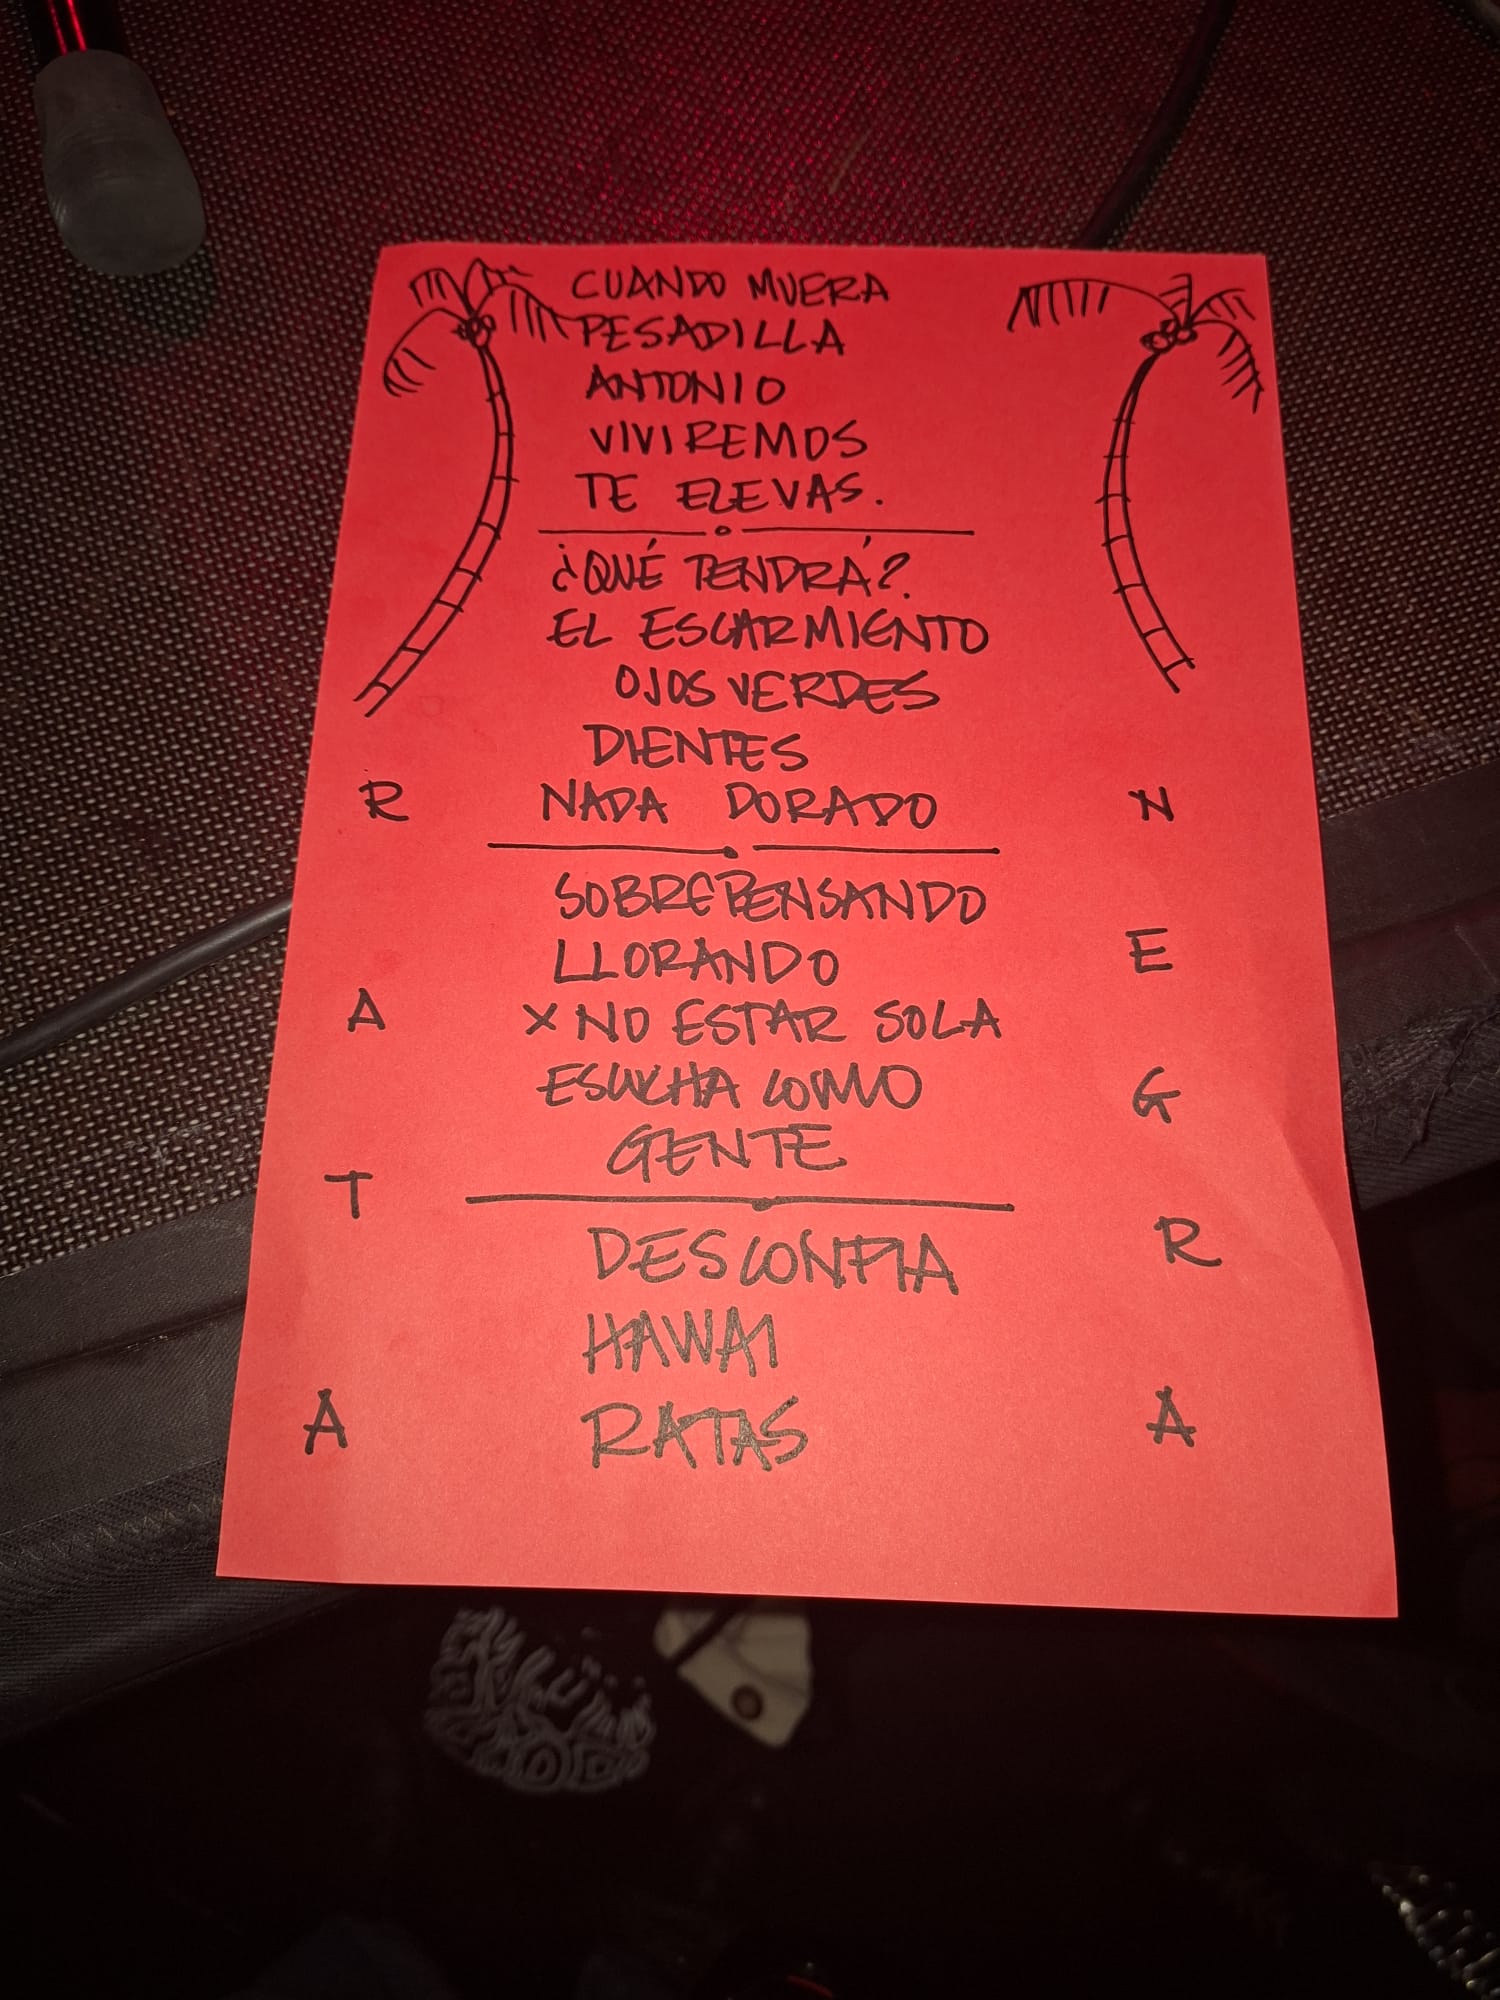 CUANDO MUERA
PESADILLA
ANTONIO
VIVIREMOS
TE ELEVAS.
¿QUÉ TENDRÁ?
EL ESCARMIENTO
OJOS VERDES
DIENTES
NADA DORADO
SOBREPENSANDO
LLORANDO
X NO ESTAR SOLA
ESCUCHA COMO
GENTE
DESCONFIA
HAWAI
RATAS
R
A
T
A
N
E
G
R
A